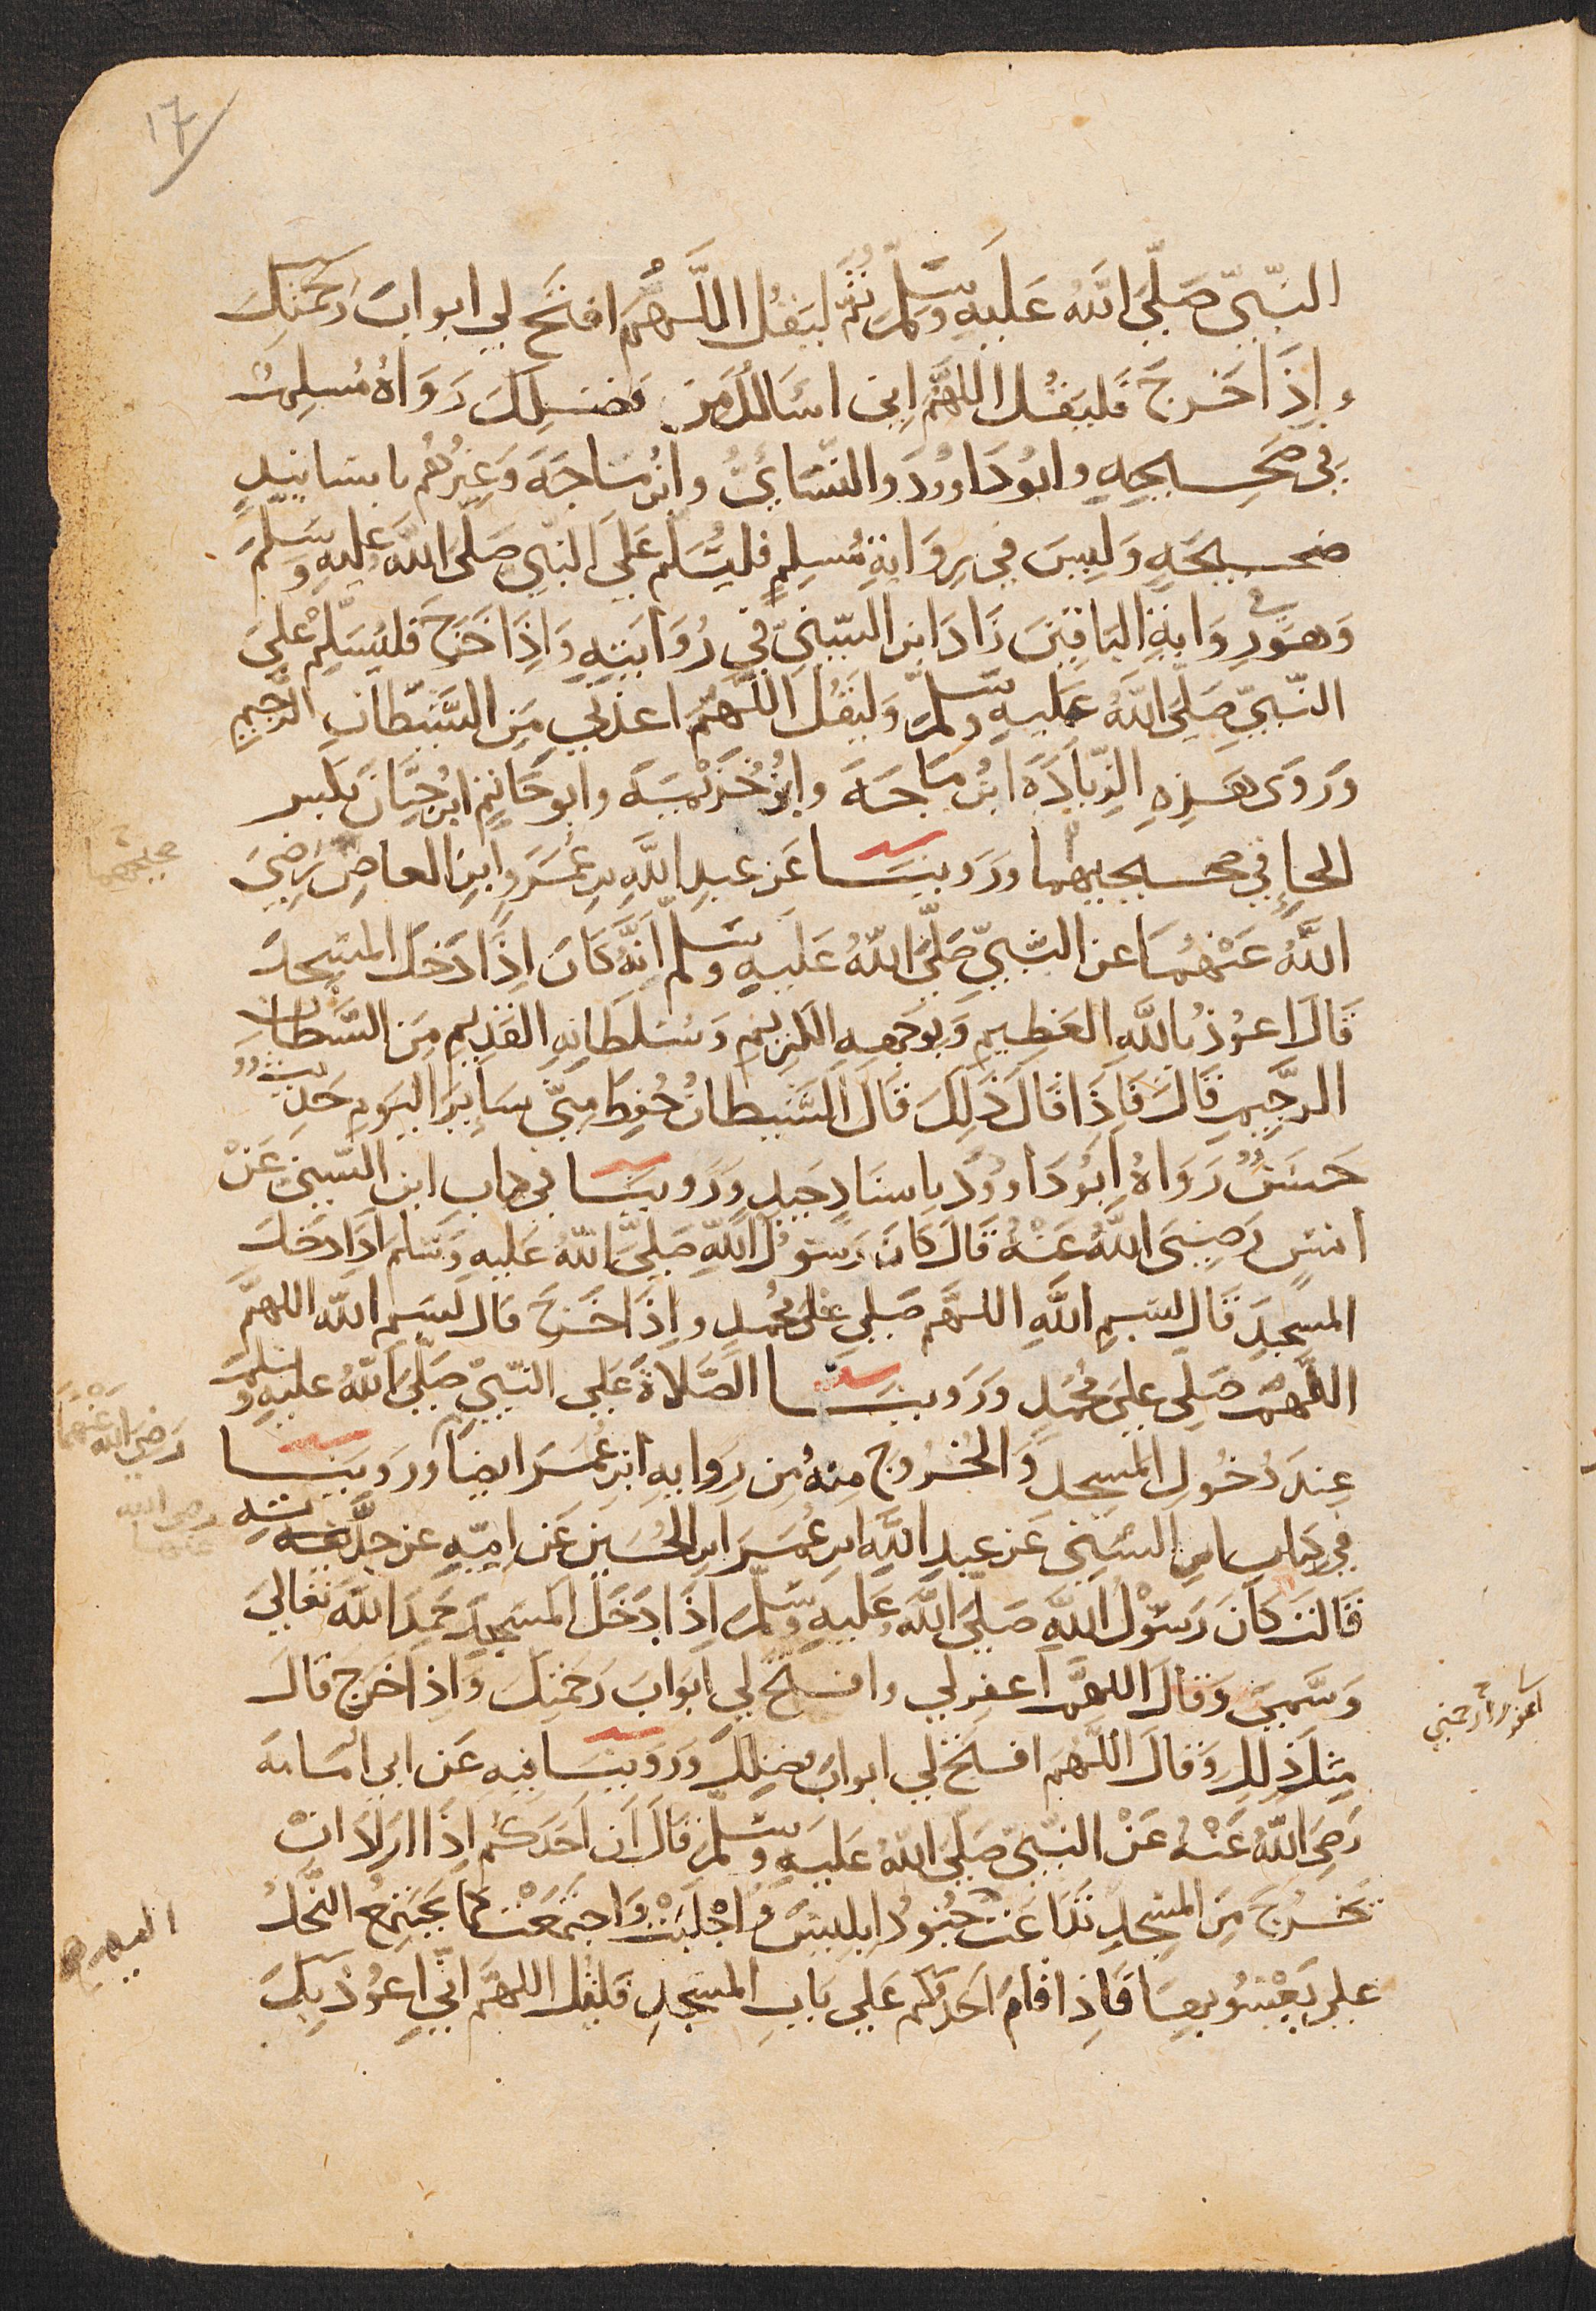 17
النّبِيّ صَلَّى اللهُ عَلَيهِ وَسَلَّمَ ثُمَّ ليَقُل اللَّهُمَّ افتَح لي ابوابَ رَحمَتِكَ
وإِذَا خَرجَ فَليَقُل اللهُمَّ إِني اسَالكَ مِن فضلِكَ رَوَاهُ مُسلِمٌ
في صَحِيحِهِ وابُو دَاوُدَ والنسَائيُّ وابنُ مَاجَه وَغيرُهُم باسَانيدٍ
صحيحَةٍ وَليسَ في رِوَايةِ مُسلِمٍ فليُسَلّم عَلَى النبي صَلَّى اللهُ عَليهِ وَسَلَّمَ
وَهوَ في رِوَايةِ البَاقِينَ زَادَ ابن السّنيّ في رُوَايَتِهِ وَاِذَا خَرَجَ فليُسَلِّم عَلَى
النّبيّ صَلَّى اللهُ عَليهِ وسَلمَ وَليَقُل اللَّهُمَّ اعذني مِن الشَّيطَانِ الرَّجِيمِ
وَرَوَى هَذِهِ الزّيَادَةَ ابنُ مَاجَهَ وابنُ خُزَيْمَةَ وابو حَاتِمٍ ابن حِبَّانَ بكسر
الحاءِ في صحيحيهما وَرَوينَا عَن عَبدِ اللَّهِ بن عَمرَو ابنِ العاصِ رَضِيَ
اللَّهُ عَنْهُمَا عن النّبيّ صَلَّى اللّهُ عَليهِ وسَلمَ اَنَّهُ كَانَ اِذَا دَخَلَ المسجِدَ
قَالَ اعوُذُ بِاللَّهِ العَظِيمِ وَبوَجهِهِ الكرِيمِ وَسُلطَانِهِ القَدِيمِ مِنَ الشَّيطَانِ
الرَّجِيمِ قَالَ فَاِذَا قَالَ ذَلِكَ قَالَ الشَّيطانُ حُفِظَ مِنّي سَايرَ اليَومِ حَدِيثٌ
حَسَنٌ رَوَاهُ ابُو دَاوُدَ باسنَادٍ جَيدٍ وَرَوينَا في كتاب ابن السّني عَنْ
انسٍ رَضِيَ اللَّهُ عَنْهُ قَالَ كَانَ رَسُولُ اللّهِ صَلَّى اللّهُ عَليهِ وَسَلمَ اِذَا دَخَلَ
المسجِدَ قَال بسمِ اللَّهِ اللَّهُم صَلي على محُمدٍ وإِذَا خَرَجَ قال بسمِ اللّهِ اللهمَّ
اللَّهمَّ صَلِي عَلَى محُمَّدٍ وَرَوينَا الصَّلَاةَ عَلَي النّبيّ صَلَّى اللّهُ عَليهِ وسَلمَ
عِندَ دُخُولِ المَسجدِ وَالخرُوجِ مِنهُ مِن رِوَايهِ ابنِ عُمَرَ ايضًا وَرَوينَا
في كتاب ابن السُّني عَن عَبدِ اللَّهِ ابن عُمَرَ ابن الحُسَينِ عَن امِّهِ عن جدَّتهِ
قَالَت كَانَ رَسُوْلُ اللَّهِ صَلَّى اللَّهُ عَليهِ وسَلمَ اِذَا دَخَلَ المسجِدَ حَمِدَ اللَّهَ تعَالَى
وَسَمَّى وَقَالَ اللَّهُمَّ اغفِر لي وافتَح لي ابَوَابَ رَحمَتِكَ وَاِذَا خَرَجَ قَالَ
مِثلَ ذَلِكَ وَقالَ اللَّهُمَ افتَح لي ابوابَ فضلِكَ وَرَوينَا فيهِ عَن ابي امَامَه
رَضِيَ اللّهُ عَنْهُ عَنْ النّبيّ صَلّى اللّهُ عَليهِ وَسَلَّمَ قَالَ اَن اَحَدَكُم اِذَا ارَادَ انْ
يَخرُجَ مِنَ المسجدِ تَدَاعَت جُنودُ ابلِيسَ وَاجْلَبَتْ وَاجتَمَعَت كما يَجتَمِعُ النَّحلُ
على يَعْسُوبهَا فَاِذَا قَامَ اَحَدكم عَلي بَابِ المسجدِ فَليقُل اللهُمَّ اِنّي اعوُذ بِكَ
صحيحيهما
رَضيَ الله عَنْهُمَا
رضي الله